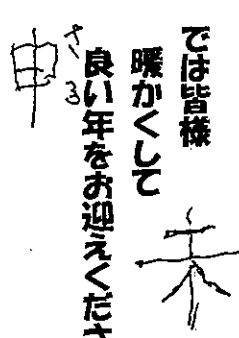 では皆様
暖かくして
良い年をお迎えくださ
さる
申
未